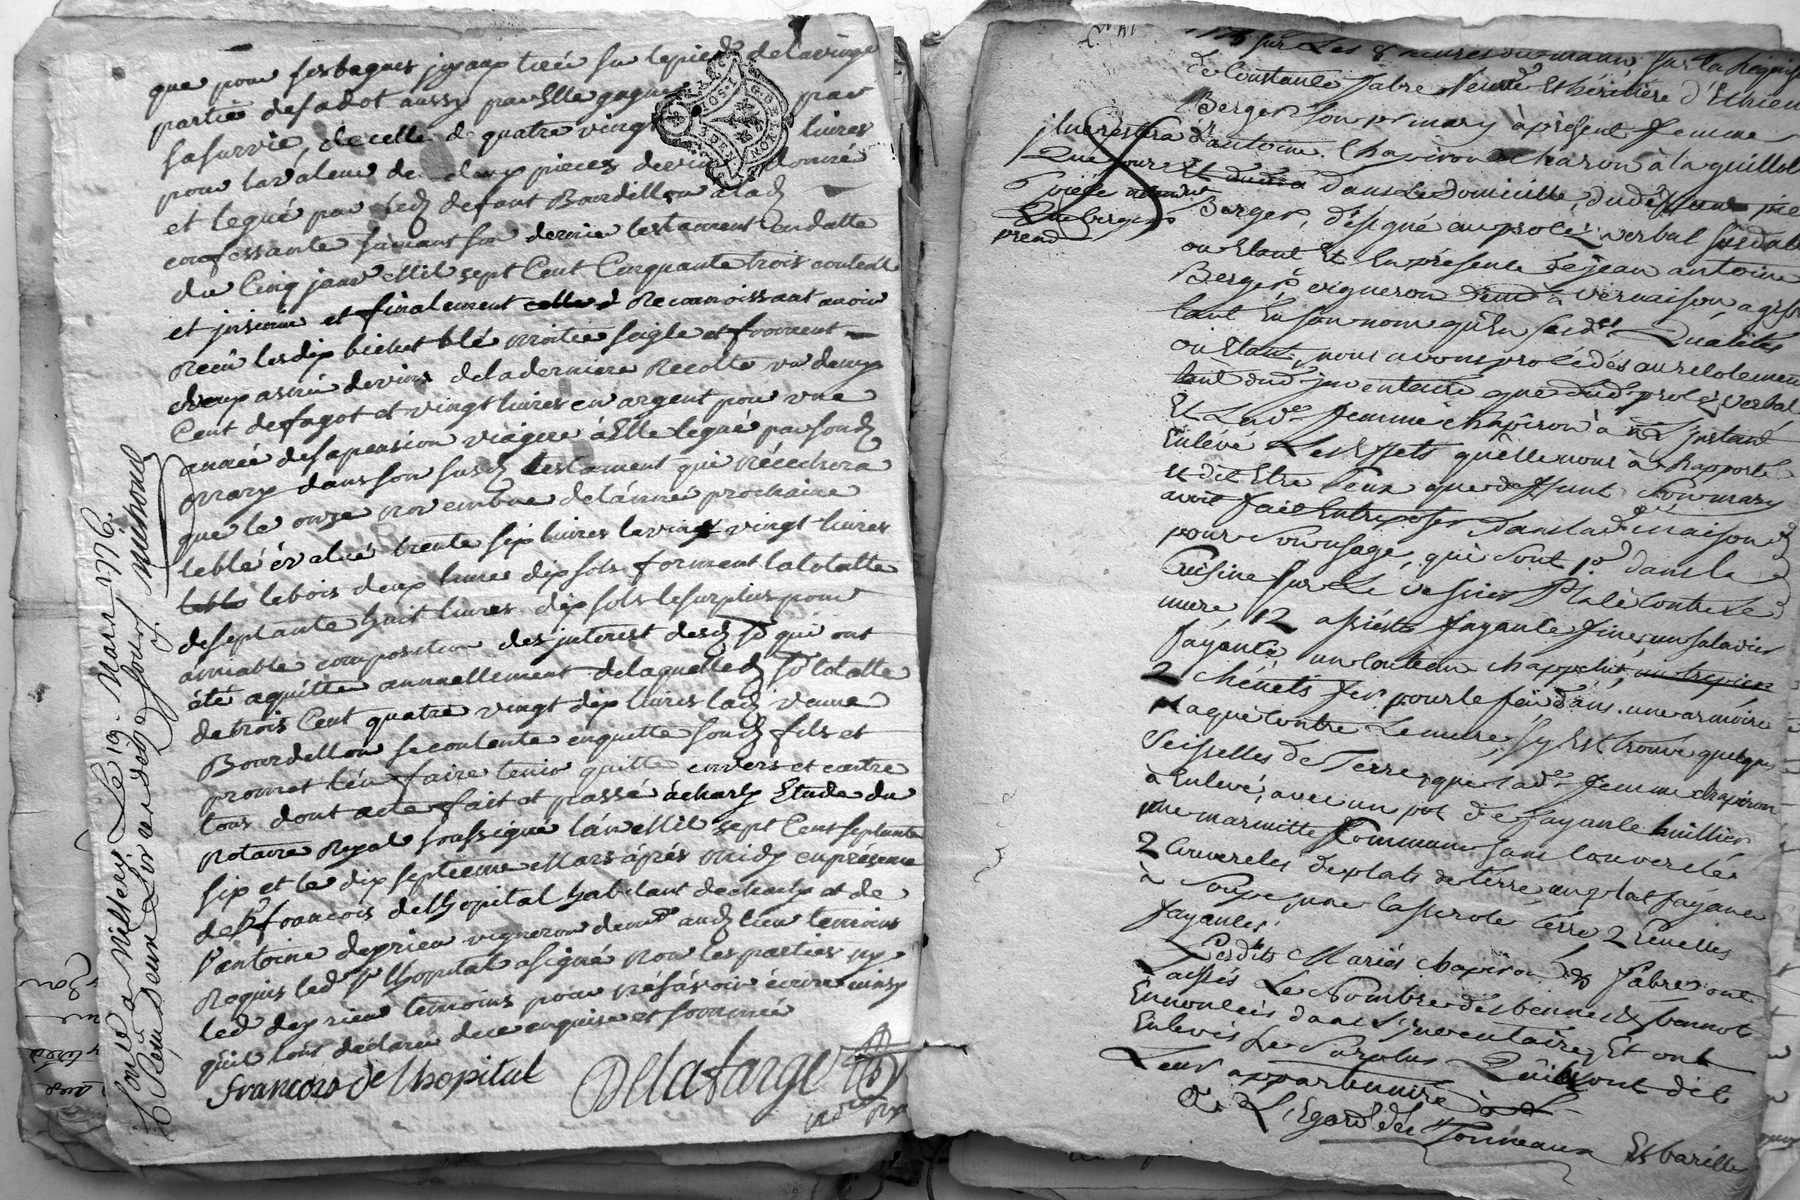 que pour ses bagues joyaux tirée sur le pied de la vingt
partie de sa dot aussy par Elle gagnée par
sa survie, de celle de quatre vingt livres
pour la valeur de deux pieces de vin donné
et legué par led defunt Bourdillon a lad
confessante suivant son dernier testament en datte
du Cinq janv Mil sept Cent Cinquante trois controllé
et insinué et finalement Reconnoissant avoir
Receu les dix bichet blé moitié seigle et froment
deux asnée de vin de la derniere Recolte un demy
Cent de fagot et vingt livres en argent pour une
année de sa pension viagere à Elle legué par sond
mary dans son susd testament qui n'écechera
que le onze novembre de l'année prochaine
le blé évalué trente six livres le vin vingt livres
le bois deux livre dix sols forment la totalle
de septante huit livres dix sols le surplus pour
amiable composition des interest desd so qui ont
été aquitte annuellement de laquelle so totalle
de trois Cent quatre vingt dix livres lad veuve
Bourdillon se contente en quitte sond fils et
promet l'en faire tenir quitte envers et contre
tous dont acte fait et passé à charly Etude du
notaire Royal soussigné l'an Mil sept Cent septante
six et le dix septieme Mars après midy en présence
de sr francois de lhopital habitant de charly et de
antoine deprieu vigneron demt aud lieu temoins
Requis led sr lhopital a signé non les parties ny
led deprieu temoins pour ne sçavoir écrire ainsy
qu'il l'ont declaré de ce enquis et sommé
Francois de lhopital Delafarge
Con a Millery Le 19. Mars 1776.
sur Les 8 heures du matin, sur la Réquisi
de Constance fabre Veuve Et héritiere d'Ethien
Berger son 1er mary à présent femme
d'antoine Chapiron charon à la guillot
dans Le domicille dud deffunt pie
Berger, désigné au procès verbal susdatte
ou Etant Et En présence de jean antoine
Berger vigneron demt à vernaison agiss
tant En son nom qu'En ses dtes Qualités
ou Etant, nous avons procédés au récolement
tant dud jnventaire que dud procès verbal
Et Lad femme chapiron à L'jnstant
Enlevé Les Effets qu'elle nous à Rapporté
et dit Etre Ceux que deffunt son mary
avoit fait Entreposer dans lad maison
pour son usage, qui sont 1o dans la
Cuisine sur Le Contre Le
mure 12 assiette fayance fine, un saladier
fayance, un Couteau chapplir, un trepier
2 chénets fer pour le feu dans une armoire
plaqué Contre Le mure, sy Est trouvé quelques
Veisselles de Terre, que lad femme chapiron
à Enlevé, avec un pot de fayance huillier
une marmitte sans Couvercle
2 Couvercles de plats de terre un plat fayance
à soupe, une Casserole terre 2 Ecuelles
fayances.
Lesdits Mariés chapiron & fabre ont
Laissés Le Nombre des bennes & bennots
Ennoncées dans L'jnventaire, Et ont
Enlevés Le surplus Qu'ils ont dit
Leur appartenir
à L'Egard des Tonneaux Et barille
Que pour
piece
Que berger
prend